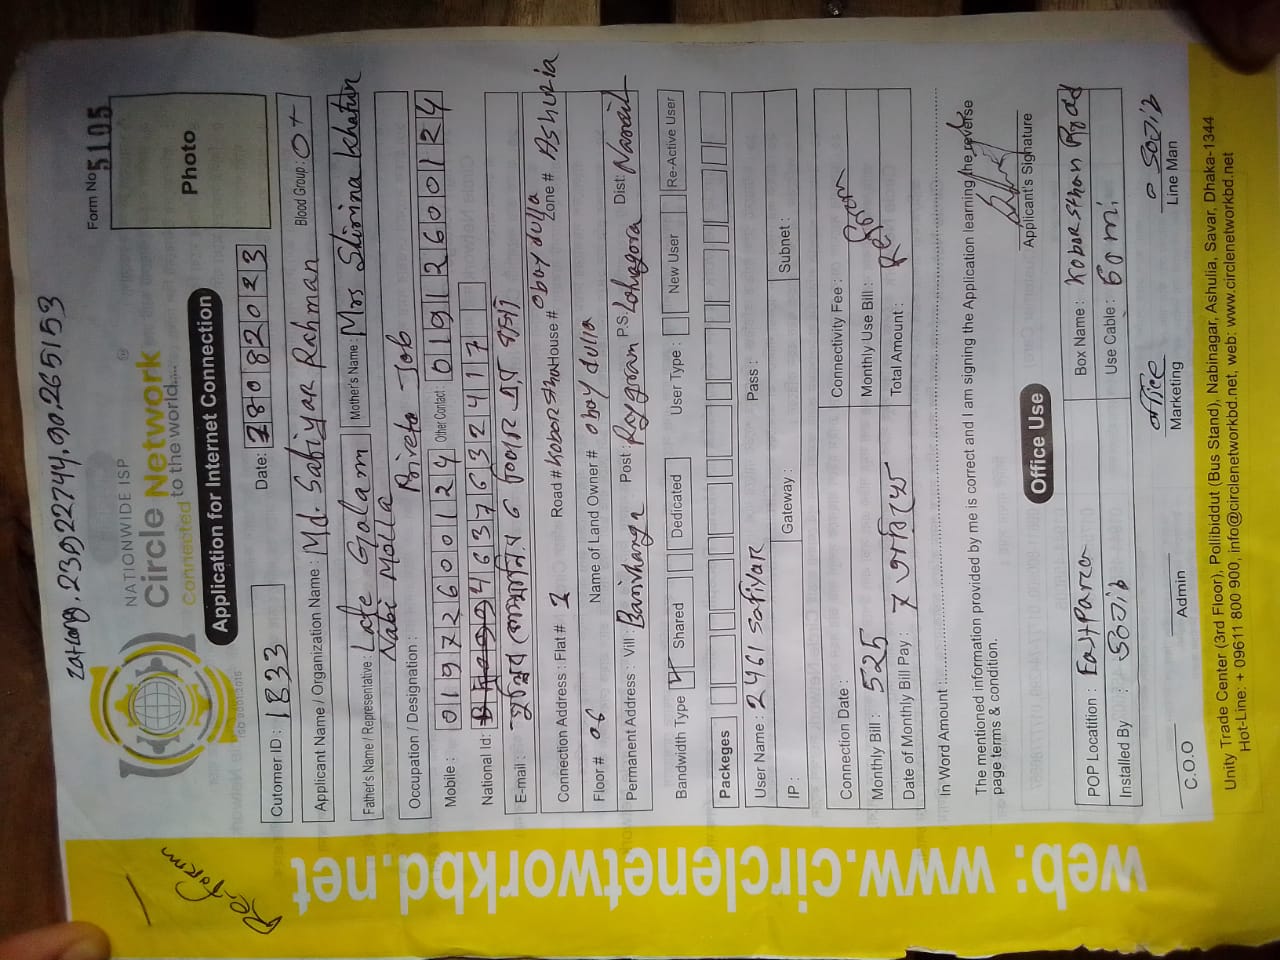 zatlong.23.9022744,90.265153
NATIONWIDE ISP
Circle Network
Connected to the world.....
ISO 9001:2015
Form No 5105
Photo
Application for Internet Connection
Cutomer ID : 1833
Date: 28082023
Applicant Name / Organization Name : Md. Safiyar Rahman
Blood Group : O+
Father's Name / Representative : Late Golam Nabi Molla
Mother's Name : Mrs Shirina Khatun
Occupation / Designation : Privet Job
Mobile : 01972600124 Other Contact : 01912600124
National Id: 4637632417
E-mail :
Connection Address : Flat # 2 Road # Koborsthan House # Obaydulla Zone # Ashulia
Floor # 06 Name of Land Owner # Obaydulla
Permanent Address : Vill : Post : Raygram P.S. Lohagora Dist: Narail
Bandwidth Type Shared Dedicated User Type : New User Re-Active User
Packeges
User Name : 2461 Safiyar Pass :
IP : Gateway : Subnet :
Connection Date : Connectivity Fee :
Monthly Bill : 525 Monthly Use Bill :
Date of Monthly Bill Pay : 7 Total Amount :
In Word Amount
The mentioned information provided by me is correct and I am signing the Application learning the reverse
page terms & condition.
Applicant's Signature
Office Use
POP Locatition : East Para Box Name : Koborsthan Road
Installed By : Sojib Use Cable : 60 mi
office Sojib
C.O.O Admin Marketing Line Man
Unity Trade Center (3rd Floor), Pollibiddut (Bus Stand), Nabinagar, Ashulia, Savar, Dhaka-1344
Hot-Line: + 09611 800 900, info@circlenetworkbd.net, web: www.circlenetworkbd.net
web: www.circlenetworkbd.net
Re-form